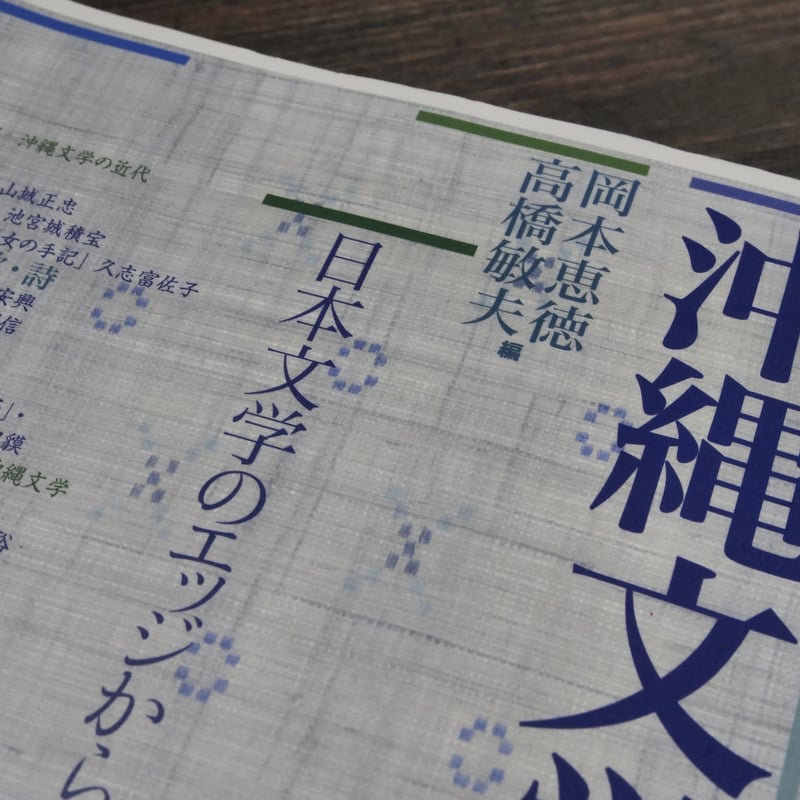 沖縄文学
岡本恵徳
高橋敏夫 編
日本文学のエッジから
沖縄文学の近代
山城正忠
池宮城積宝
女の手記」久志富佐子
・詩
縄文学